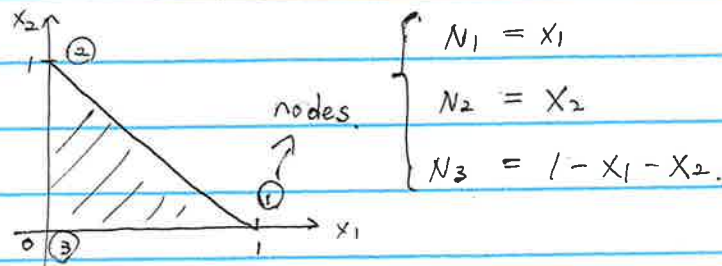 x₂
1 ②
nodes.
①
0 ③ 1 x₁
N₁ = x₁
N₂ = x₂
N₃ = 1 - x₁ - x₂.